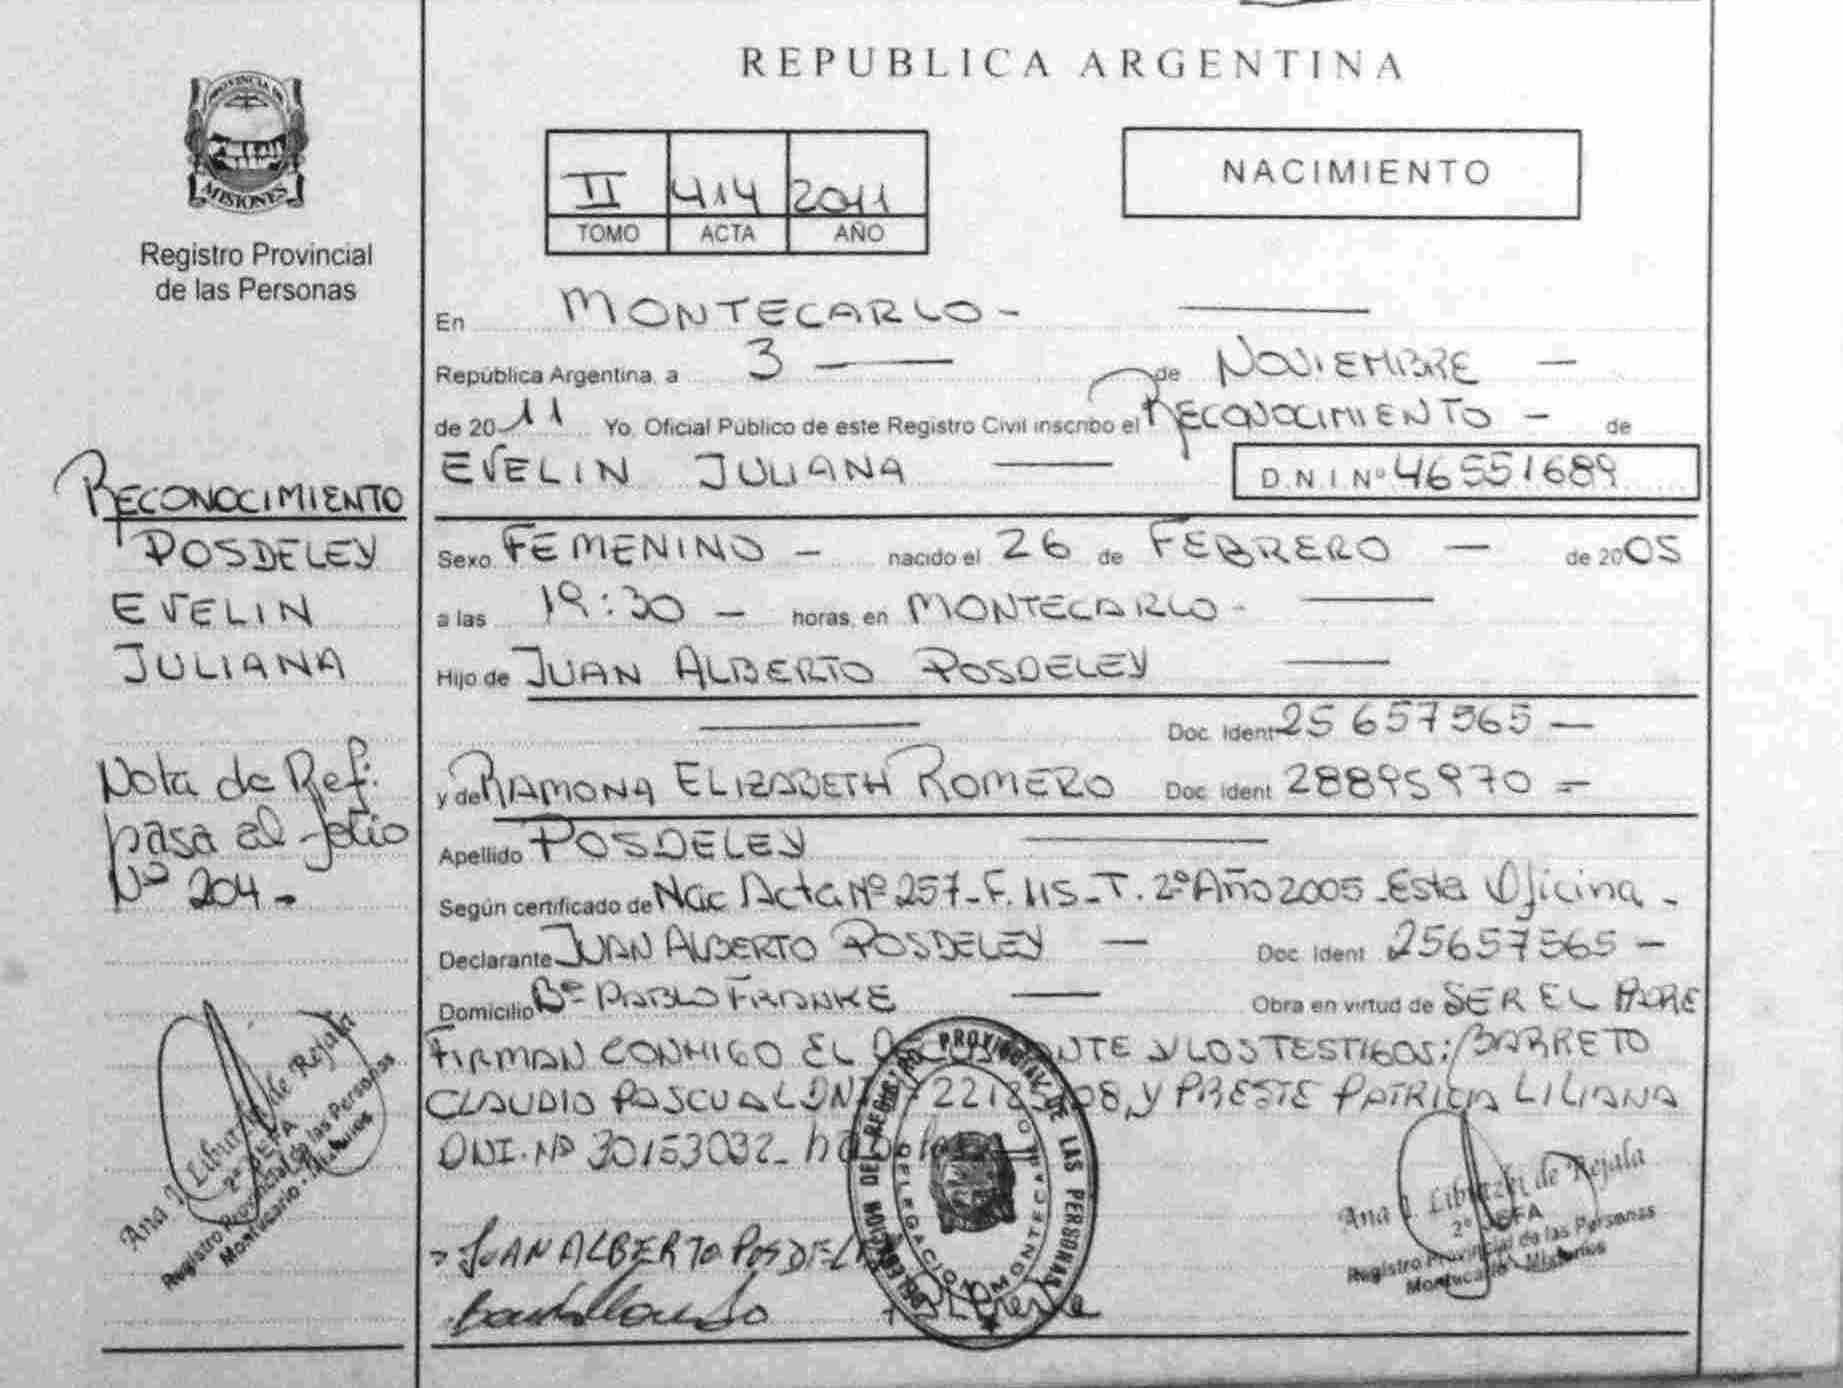 REPUBLICA ARGENTINA
PROVINCIA DE
MISIONES
Registro Provincial
de las Personas
II 414 2011
TOMO ACTA AÑO
NACIMIENTO
En MONTECARLO -
República Argentina, a 3 de NOVIEMBRE
de 2011 Yo, Oficial Público de este Registro Civil inscribo el RECONOCIMIENTO - de
EVELIN JULIANA D.N.I Nº 46551689
Sexo FEMENINO - nacido el 26 de FEBRERO - de 2005
a las 19:30 - horas, en MONTECARLO -
Hijo de JUAN ALBERTO POSDELEY
Doc. Ident 25657565 -
y de RAMONA ELIZABETH ROMERO Doc. Ident 28895970 =
Apellido POSDELEY
Según certificado de Nac Acta Nº 257 - F. 115 - T. 2º Año 2005 - Esta Oficina -
Declarante JUAN ALBERTO POSDELEY - Doc. Ident 25657565 -
Domicilio Bº PABLO FRANKE Obra en virtud de SER EL PADRE
FIRMAN CONMIGO EL Y LOS TESTIGOS: BARRETO
CLAUDIO PASCUAL DNI Y PRESTE PATRICIA LILIANA
DNI. Nº 30153032 -
JUAN ALBERTO POSDEL
RECONOCIMIENTO
POSDELEY
EVELIN
JULIANA
Nota de Ref:
pasa al folio
Nº 204 -
Ana I. de Rejala
2º JEFA
Registro Provincial de las Personas
Montecarlo - Misiones
DIRECCION DEL REGISTRO PROVINCIAL DE LAS PERSONAS
DELEGACION MONTECARLO
Ana I. de Rejala
2º JEFA
Registro Provincial de las Personas
Montecarlo - Misiones